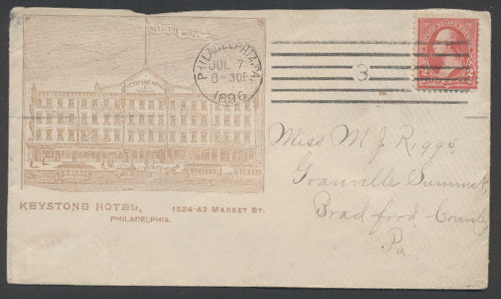 KEYSTONE
HOTEL
KEYSTONE HOTEL
PHILADELPHIA, PA.
JUL 7
8-30P
1896
3
KEYSTONE HOTEL, 1524-42 MARKET ST.
PHILADELPHIA.
Miss M J Riggs.
Granville Summit
Bradford County
Pa